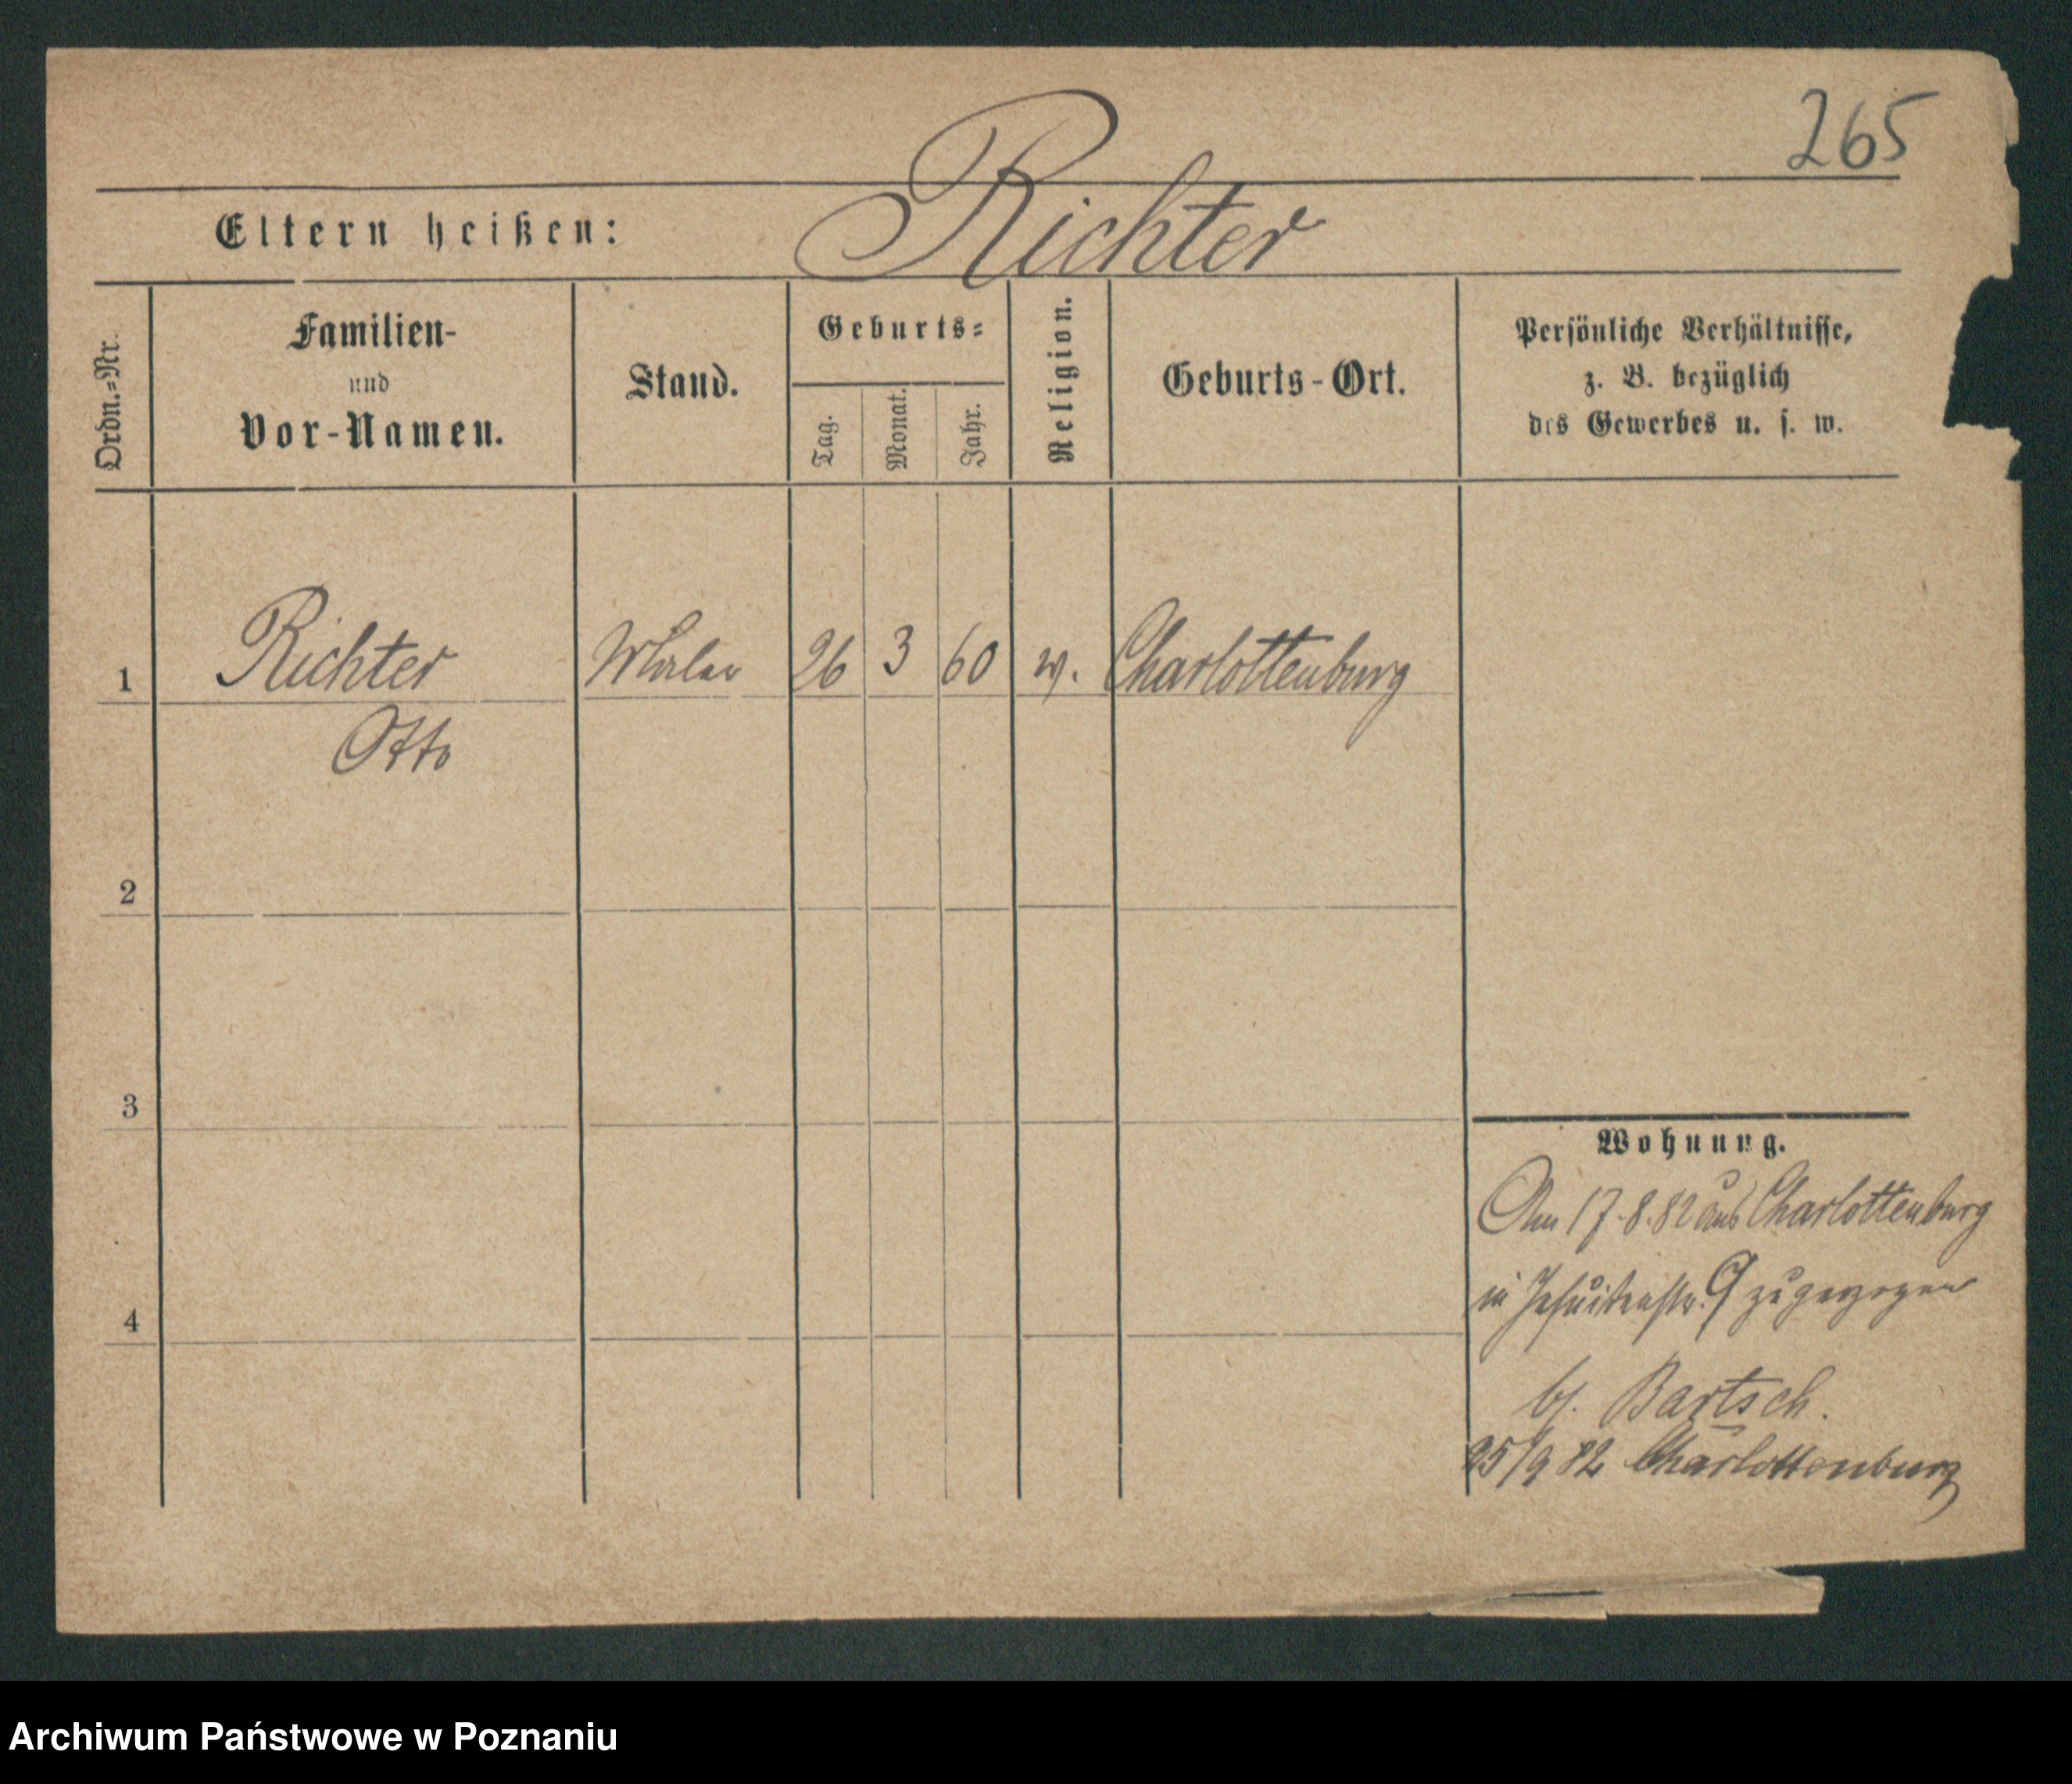 265
Eltern heißen: Richter
Ordn.=Nr.
Familien-
und
Vor-Namen.
Stand.
Geburts=
Tag.
Monat.
Jahr.
Religion.
Geburts-Ort.
Persönliche Verhältnisse,
z. B. bezüglich
des Gewerbes u. s. w.
1 Richter Maler 26 3 60 Charlottenburg
Otto
2
3
4
Wohnung.
Am 17.8.82 aus Charlottenburg
in Jesuitenstr. 9 zugezogen
b/. Bartsch.
25/9 82 Charlottenburg
Archiwum Państwowe w Poznaniu